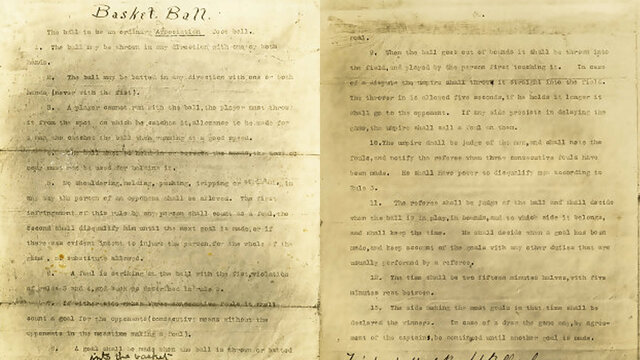 Basket Ball.
The ball to be an ordinary Association foot ball.
1. The ball may be thrown in any direction with one or both
hands.
2. The ball may be batted in any direction with one or both
hands (never with the fist).
3. A player cannot run with the ball, the player must throw
it from the spot on which he catches it, allowance to be made for
a man who catches the ball when running at a good speed.
4. The ball must be held in or between the hands, the arms or
body must not be used for holding it.
5. No shouldering, holding, pushing, tripping or in
any way the person of an opponent shall be allowed. The first
infringement of this rule by any person shall count as a foul, the
second shall disqualify him until the next goal is made, or if
there was evident intent to injure the person, for the whole of the
game, no substitute allowed.
6. A foul is striking at the ball with the fist, violation
of rules 3 and 4, and such as described in rule 5.
7. If either side makes three consecutive fouls it shall
count a goal for the opponents (consecutive means without the
opponents in the meantime making a foul).
8. A goal shall be made when the ball is thrown or batted
into the basket
goal.
9. When the ball goes out of bounds it shall be thrown into
the field, and played by the person first touching it. In case
of a dispute the umpire shall throw it straight into the field.
The thrower in is allowed five seconds, if he holds it longer it
shall go to the opponent. If any side persists in delaying the
game, the umpire shall call a foul on them.
10. The umpire shall be judge of the men, and shall note the
fouls, and notify the referee when three consecutive fouls have
been made. He shall have power to disqualify men according to
Rule 5.
11. The referee shall be judge of the ball and shall decide
when the ball is in play, in bounds, and to which side it belongs,
and shall keep the time. He shall decide when a goal has been
made, and keep account of the goals with any other duties that are
usually performed by a referee.
12. The time shall be two fifteen minutes halves, with five
minutes rest between.
13. The side making the most goals in that time shall be
declared the winners. In case of a draw the game may, by agree-
ment of the captains, be continued until another goal is made.